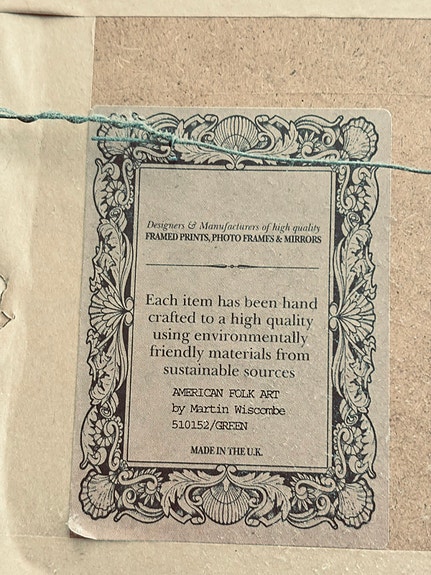 Designers & Manufacturers of high quality
FRAMED PRINTS, PHOTO FRAMES & MIRRORS
Each item has been hand
crafted to a high quality
using environmentally
friendly materials from
sustainable sources
AMERICAN FOLK ART
by Martin Wiscombe
510152/GREEN
MADE IN THE U.K.